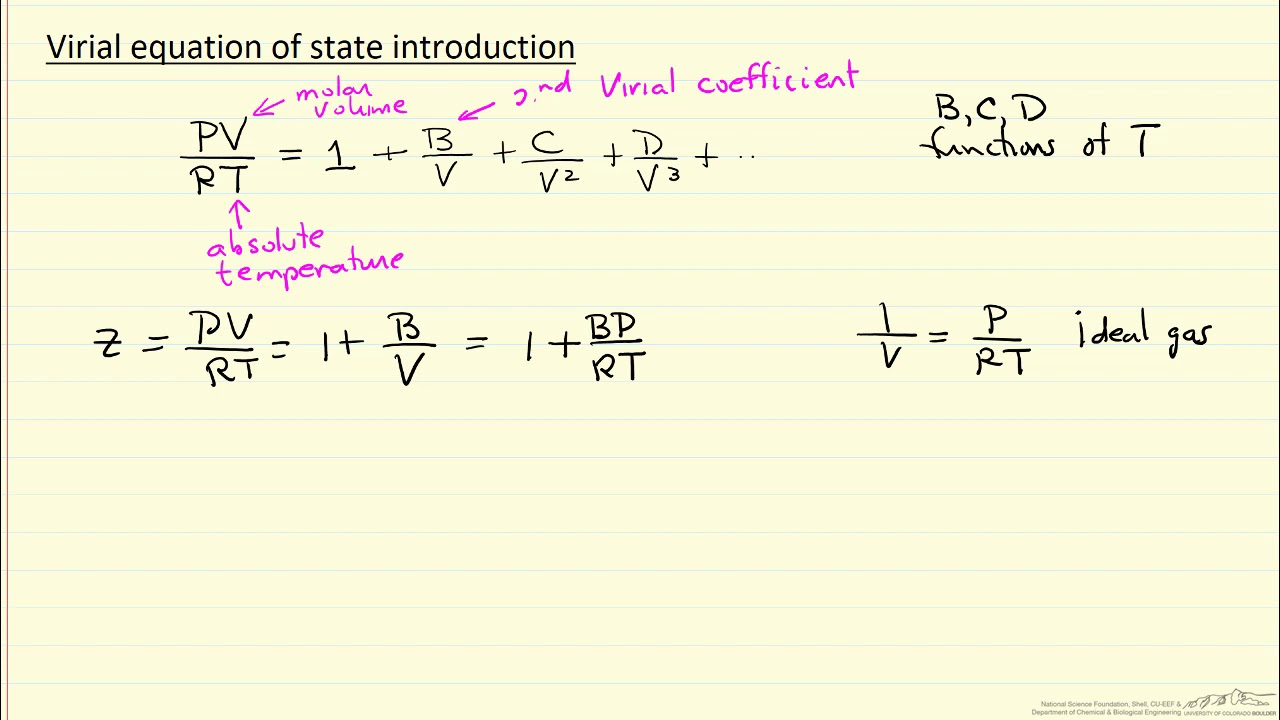 Virial equation of state introduction
molar volume
2nd Virial coefficient
PV/RT = 1 + B/V + C/V² + D/V³ + ··
B, C, D
functions of T
absolute
temperature
Z = PV/RT = 1 + B/V = 1 + BP/RT
1/V = P/RT ideal gas
National Science Foundation, Shell, CU-EEF &
Department of Chemical & Biological Engineering UNIVERSITY OF COLORADO BOULDER